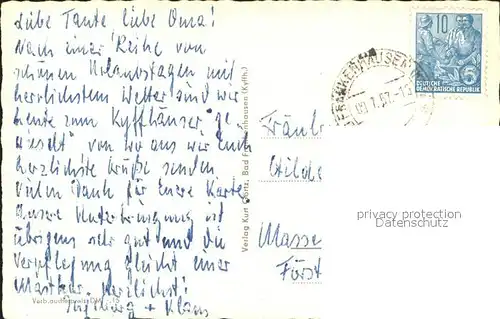 Liebe Tante liebe Oma!
Nach einer Reihe von
schönen Urlaubstagen mit
herrlichstem Wetter sind wir
heute zum Kyffhäuser "ge
wo aus wir Euch
herzlichste Grüße senden.
Vielen Dank für Eure Karte
Unsere Unterbringung ist
übrigens sehr gut und die
Verpflegung gleicht einer
Mastkur. Herzlichst!
Ingeborg + Klaus
Verlag Kurt Bad Frankenhausen (Kyffh.)
Fräul
Hilde
Masse
Först
10
DEUTSCHE
DEMOKRATISCHE REPUBLIK
FRANKENHAUSEN
privacy protection
Datenschutz